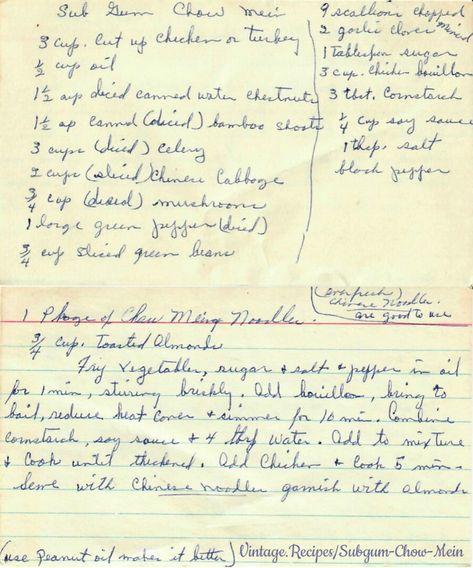 Sub Gum Chow Mein
3 cup. cut up chicken or turkey
½ cup oil
1½ cup diced canned water chestnuts
1½ cp cannd (diced) bamboo shoots
3 cups (diced) celery
2 cups (sliced) Chinese Cabbage
¾ cup (diced) mushrooms
1 large green pepper (diced)
¾ cup sliced green beans
9 scallions chopped
2 garlic cloves minced
1 Tablespoon sugar
3 cup. chicken bouillon
3 tbst. Cornstarch
¼ cup soy sauce
1 thsp. salt
black pepper
(evenfresh)
Chinese Noodles.
are good to use
1 Pkage of Chow Mein Noodles.
¾ cup. Toasted Almonds
Fry vegetables, sugar & salt & pepper in oil
for 1 min, stirring briskly. Add bouillon, bring to
boil, reduce heat cover & simmer for 10 min. Combine
cornstarch, soy sauce & 4 tbsp water. Add to mixture
& cook until thickened. Add Chicken & Cook 5 min.
Serve with Chinese noodles garnish with almonds
(use Peanut oil makes it better)
Vintage.Recipes/Subgum-Chow-Mein